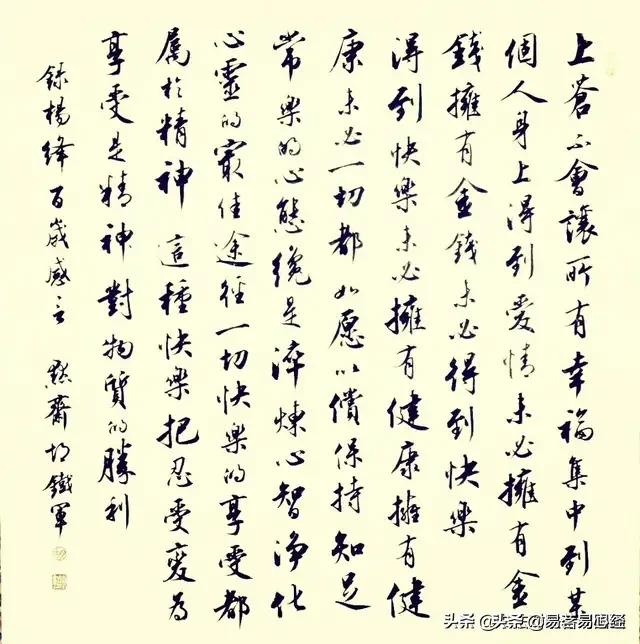 上蒼不會讓所有幸福集中到某
個人身上得到愛情未必擁有金
錢擁有金錢未必得到快樂
得到快樂未必擁有健康擁有健
康未必一切都如愿以償保持知足
常樂的心態纔是淬煉心智淨化
心靈的最佳途徑一切快樂的享受都
屬於精神這種快樂把忍受變為
享受是精神對物质的勝利
録楊绛百歲感言 默齋胡鐵軍
头条@头条@易客易经